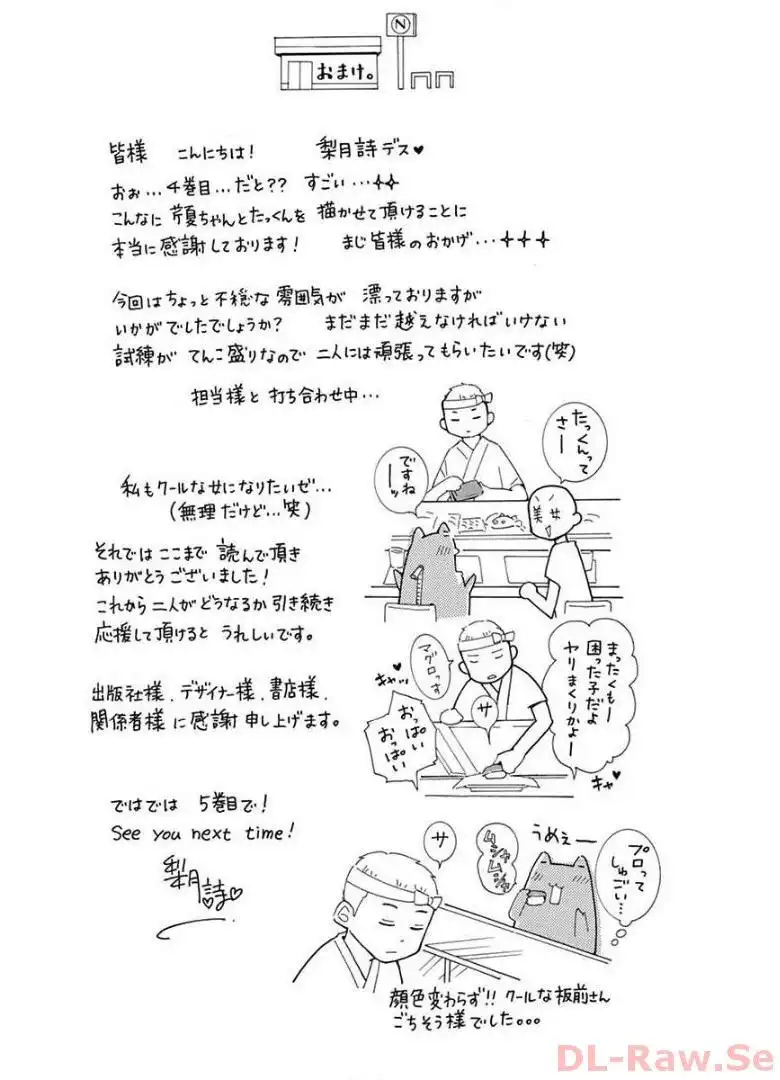 N
おまけ。
皆様 こんにちは! 梨月詩デス♥
おぉ…4巻目…だと?? すごい…✧✧
こんなに 芹夏ちゃんとたっくんを 描かせて頂けることに
本当に感謝しております! まじ皆様のおかげ…✧✧✧
今回はちょっと不穏な雰囲気が 漂っておりますが
いかがでしたでしょうか? まだまだ越えなければいけない
試練が てんこ盛りなので 二人には頑張ってもらいたいです(笑)
担当様と打ち合わせ中…
たっくんって
さー
ですね
ーッ
美女
私もクールな女になりたいぜ…
(無理だけど…笑)
それでは ここまで 読んで頂き
ありがとうございました!
これから二人がどうなるか引き続き
応援して頂けると うれしいです。
まったくもー
困った子だよ
ヤりまくりかよー
キャ♥
マグロっす
キャッ♥
サ
おっぱい
おっぱい
出版社様、デザイナー様、書店様、
関係者様に感謝申し上げます。
ではでは 5巻目で!
See you next time!
梨月詩♡
プロって
しゅごい…
うめぇー
ムシャムシャ
サ
顔色変わらず!! クールな板前さん
ごちそう様でした。。。
DL-Raw.Se